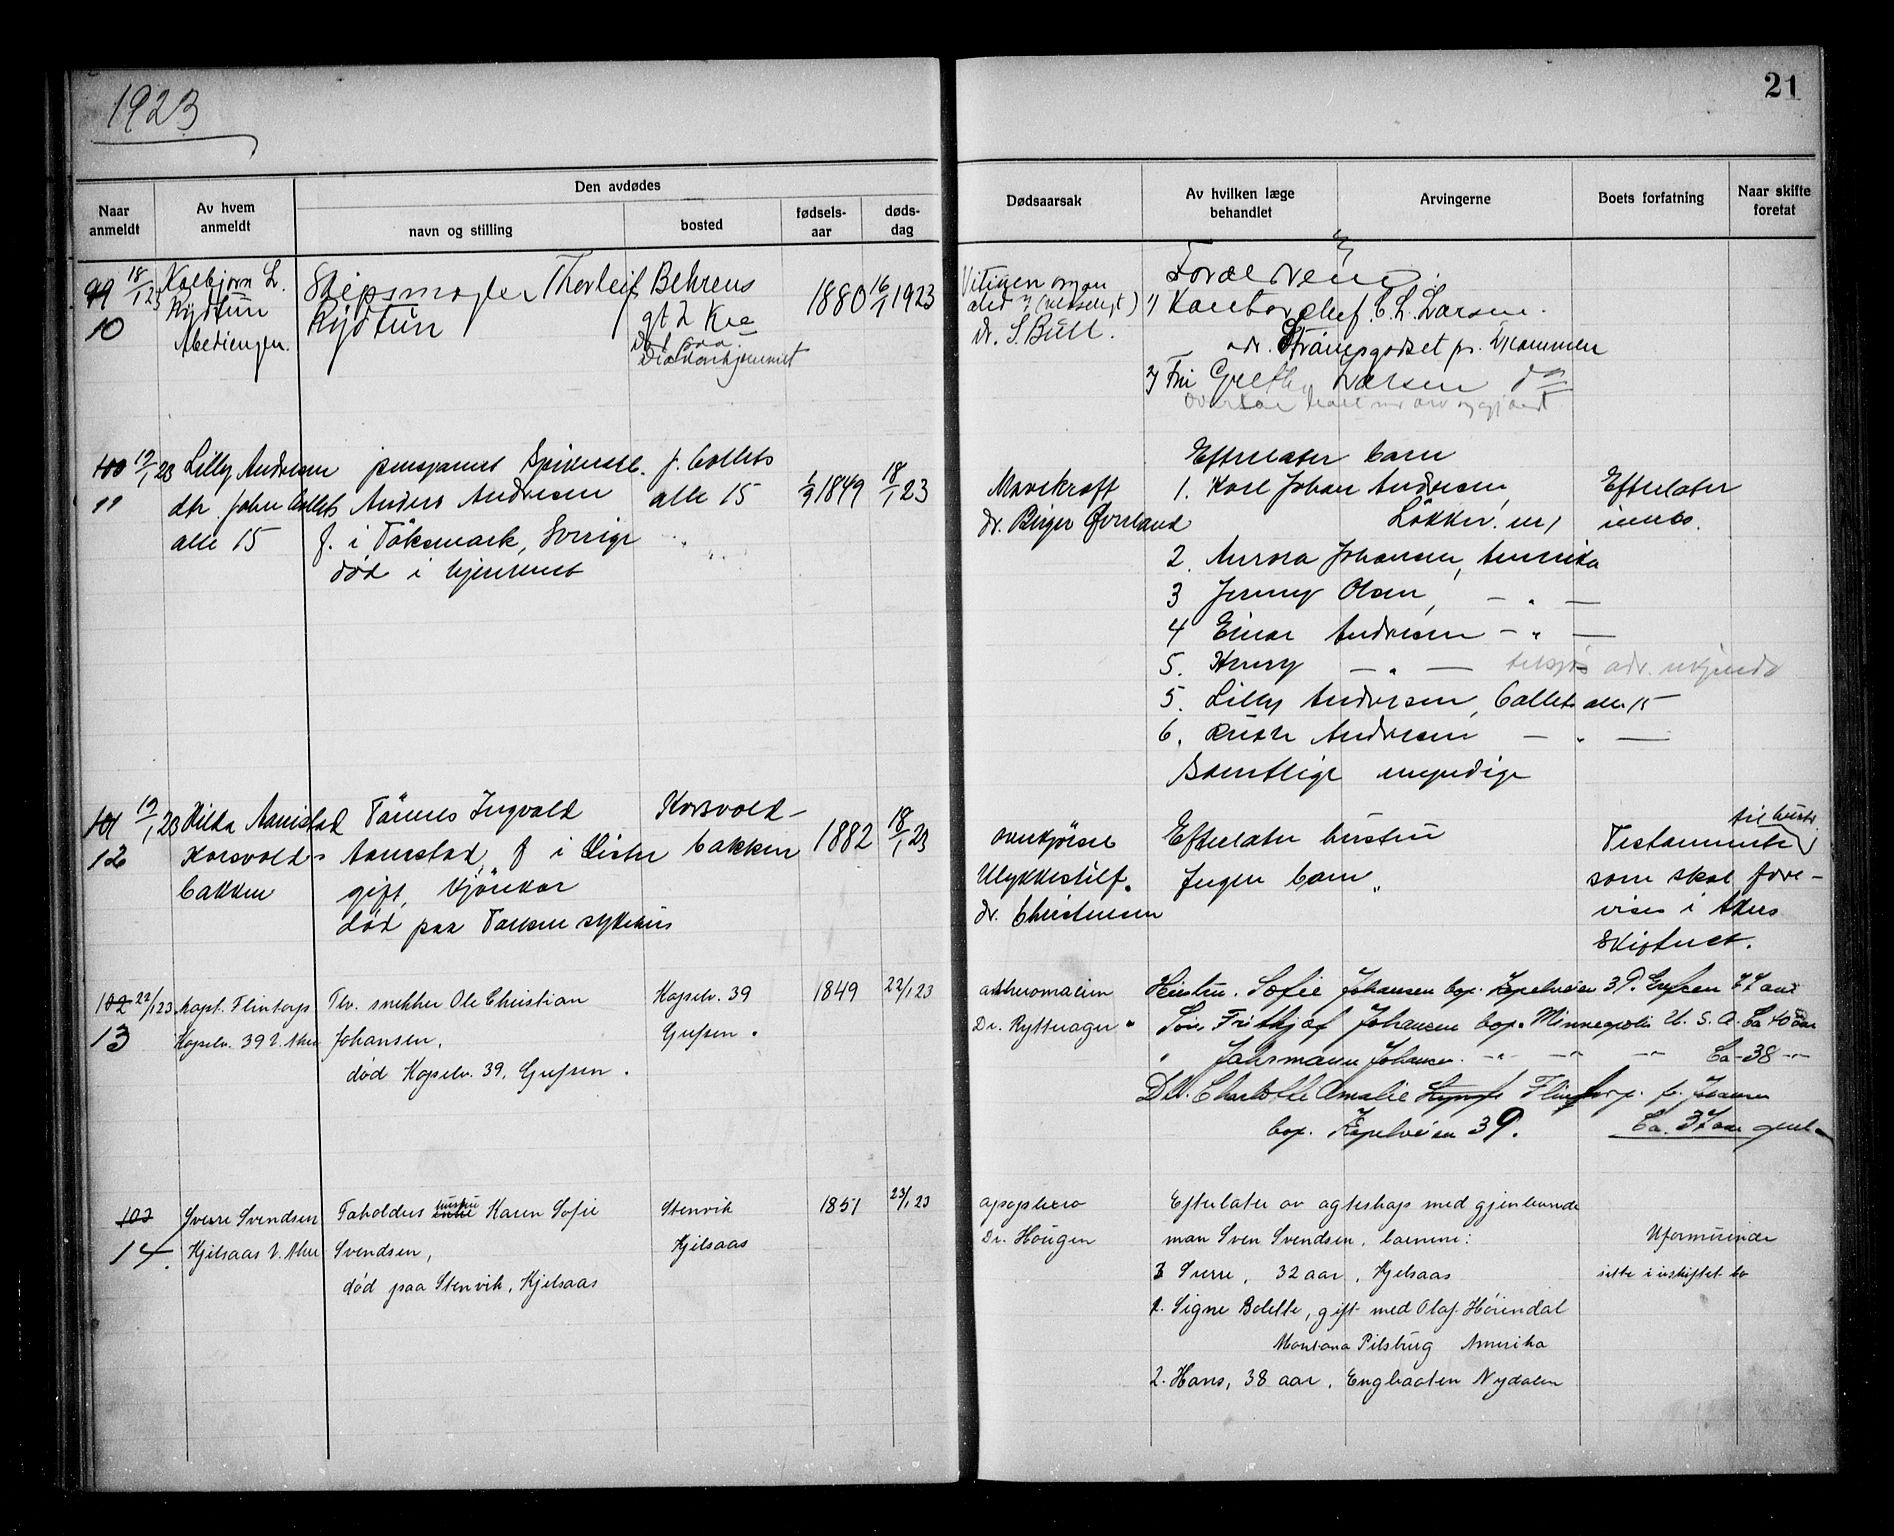 1923
21
Den avdødes
Naar anmeldt
Av hvem anmeldt
navn og stilling
bosted
fødsels-aar
døds-dag
Dødsaarsak
Av hvilken læge behandlet
Arvingerne
Boets forfatning
Naar skifte foretat
99 18/1 23
10
Kolbjørn L.
Rydtun
Skipsmægler Thorleif
Rydtun
Behrens
gt 2 Kra
Død paa
Diakonhjemmet
1880
16/1 1923
Dr. S. Bull.
Forældrene
1) Kontorchef C. L. Larsen.
adr. Strømsgodset pr. Drammen
2) Fru Grethe Larsen do
100 19/1 23
11
Lilly Andresen
dtr. John Collets
alle 15
pensjonert
Anders Andresen
f. i Töksmark, Sverige
død i hjemmet
J. Collets
alle 15
1/9 1849
18/1 23
Marekræft
dr. Birger Øverland
Efterlater barn
1. Karl Johan Andresen,
Løkkev. 11,
2. Aurora Johansen, Amerika
3 Jenny Olsen, — " —
4 Einar Andresen — " —
5. Henry — " — tilsjøs adr. ukjendt
5. Lilly Andresen, Collets alle 15
6. Ruth Andresen — " —
Samtlige myndige
Efterlater
innbo.
101 19/1 23
12
Hilda Aamstad
Korsvolds
bakken
Tönnes Ingvald
Aamstad, f i Lister
gift, kjörekar
død paa Taasen sykehus
Korsvold-
bakken
1882
18/1 23
overkjörsel
Ulykkestilf.
dr. Christensen
Efterlater hustru
Ingen barn
til hustr.
Testamente
som skal fore-
vises i Akers
Skifteret.
102 22/1 23
13
Kapt. Flintorp
Kapelv. 39 V. Aker
Fhv. snekker Ole Christian
Johansen,
død Kapelv. 39, Grefsen.
Kapelv. 39
Grefsen.
1849
22/1 23
Dr. Rytterager
Hustru. Sofie Johansen bop. Kapelveien 39. Grefsen 77 aar
Søn Frithjof Johansen bop. Minneapolis U. S. A. Ca 40 aar
" Johansen. — " — — " — — " — Ca 38 — " —
Dtr. Charlotte Amalie Flintorp. f. Johansen
bop. Kapelveien 39.
Ca. 37 aar gml.
103
14.
Sverre Svendsen
Kjelsaas V. Aker
Faholders hustru Karen Sofie
Svendsen,
død paa Stenvik, Kjelsaas
Stenvik
Kjelsaas
1851
23/1 23
apoplexia
Dr. Hougen
Efterlater av egteskap med gjenlevende
man Sven Svendsen, barnene:
3 Sverre, 32 aar, Kjelsaas
1. Signe Bolette, gift med Olaf Höiendal
Montana Pilsburg Amerika
2. Hans, 38 aar, Engbraaten Nydalen
Uformuende
sitte i uskiftet bo